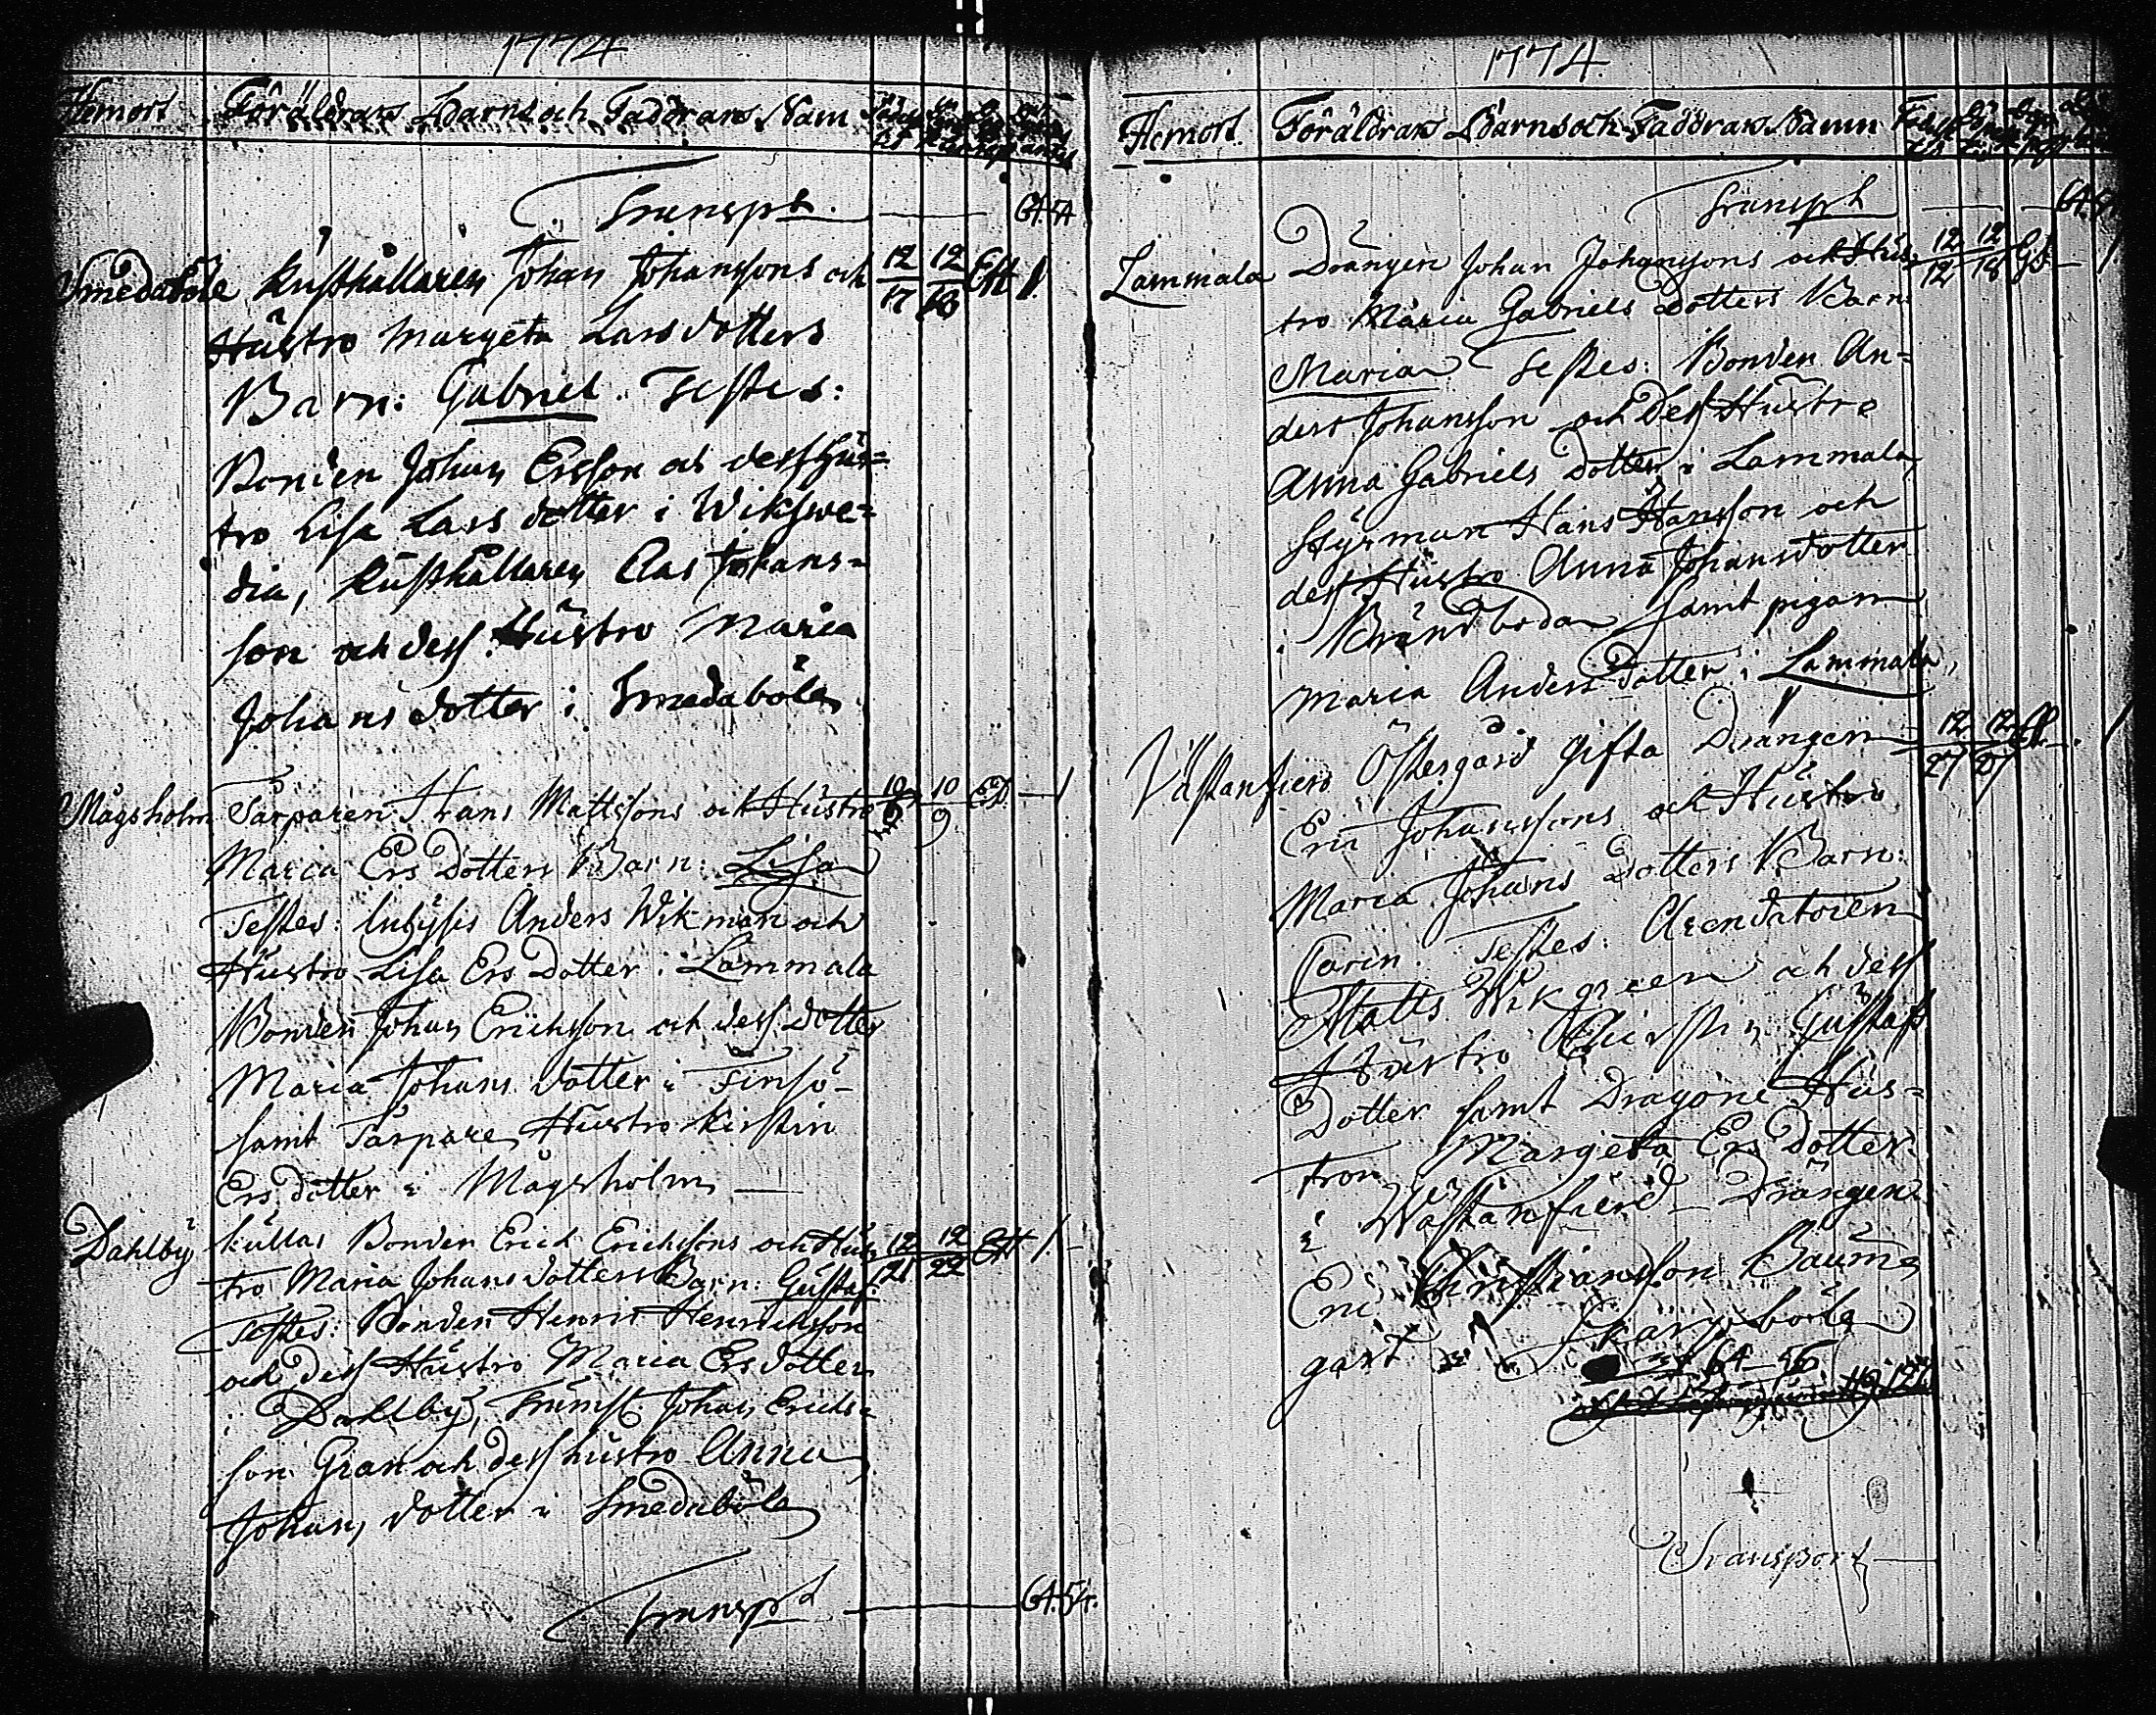 1774
Hemort Föräldrars Barns och Faddrars Namn
Transpt. 64. 54
Smedaböle Rusthållaren Johan Johanssons och 12/17 12/18 EH 1.
Hustro Margeta Lars dotters
Barn: Gabriel. Testes:
Bonden Johan Ersson och dess Hus=
tro Lisa Lars dotter i Wikswe=
dia, Rusthållaren Clas Johans=
son och dess Hustro Maria
Johans dotter i Smedaböle
Mågsholm Tarparen Hans Mattssons och Hustro 10/9 ED. 1
Maria Ers Dotters Barn: Lisa
Testes: Anders Wikman och
Hustro Lisa Ers Dotter i Lammala
Bonden Johan Erichsson och dess dotter
Maria Johans dotter i Finsjö
samt Tarpare Hustro Kirstin
Ers dotter i Mågsholm
Dahlby Kullas Bonden Erich Erichssons och Hus= 12/21 12/22 EH 1
tro Maria Johans dotters Barn: Gustaf.
Testes: Bonden Henric Henrichsson
och dess Hustro Maria Ers dotter
i Dahlby, Johan Erichs=
son Gran och dess hustro Anna
Johans dotter i Smedaböle
Transpt 64. 54.
1774
Hemort. Föräldrars Barns och Faddrars Namn
Transpt 64. 54
Lammala Drängen Johan Johanssons och Hus= 12/12 12/18 1
tro Maria Gabriels Dotters Barn:
Maria Testes: Bonden An=
ders Johansson och dess Hustro
Anna Gabriels Dotter i Lammala
Styrman Hans Hansson och
dess Hustro Anna Johans dotter
i Brändbodan samt pigan
Maria Anders Dotter i Lammala,
Västanfierd Östergård Gifta Drängen 12/27 12/27 1
Eric Johanssons och Hustro
Maria Johans Dotters Barn:
Carin. Testes: Arendatoren
Matts Wikgreen och dess
Hustro Christin Gustafs
Dotter samt Dragone Hus=
tron Margeta Ers Dotter
i Wästanfierd Drängen
Eric Christiansson Baum=
gart i Skärgböle
64 56
Transport